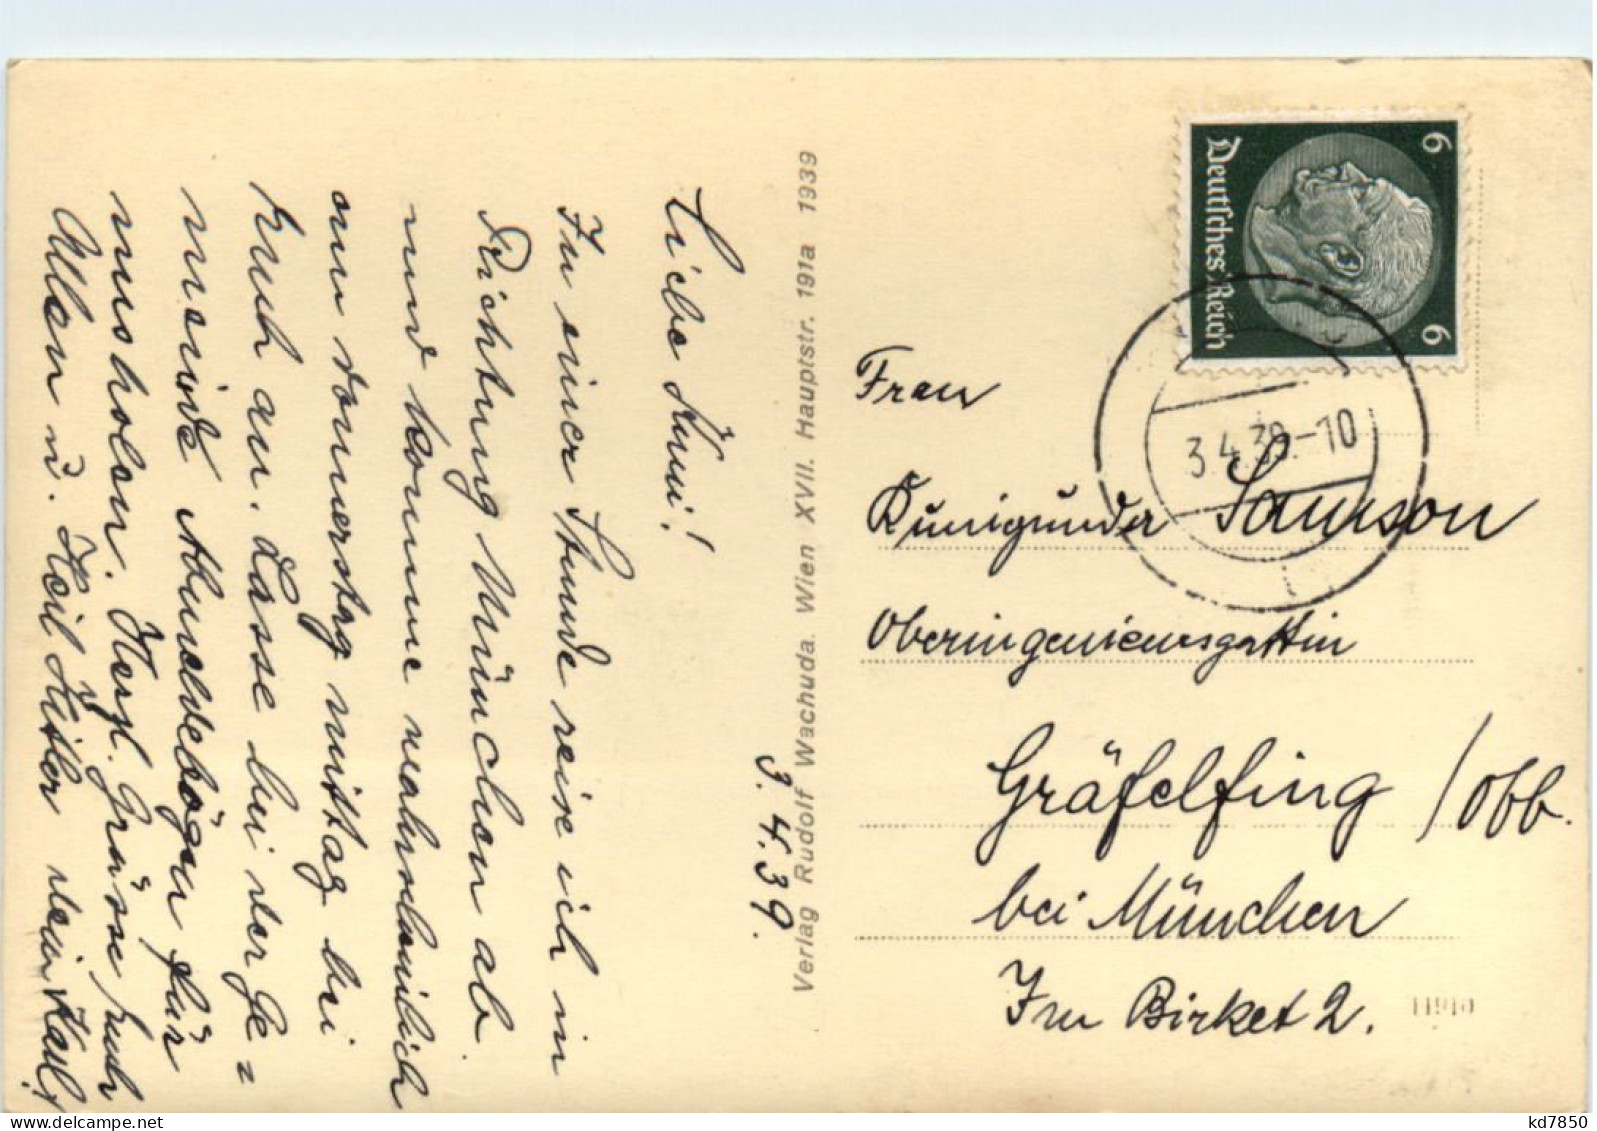 3. 4. 39.
Liebe Kuni!
In einer Stunde reise ich in
Richtung München ab
und komme wahrscheinlich
am Donnerstag mittag bei
Euch an. Lasse bei der Ge=
meinde Ahnenbögen für
mus holen. Herzl. Grüsse Euch
Allen u. Heil Hitler dein Karl!
Verlag Rudolf Wachuda. Wien XVII. Hauptstr. 191a 1939
6 6
Deutsches Reich
3.4.39.-10
Frau
Kunigunder Samson
Oberingenieursgattin
Gräfelfing / Obb.
bei München
Im Birket 2.
delcampe.net
kd7850